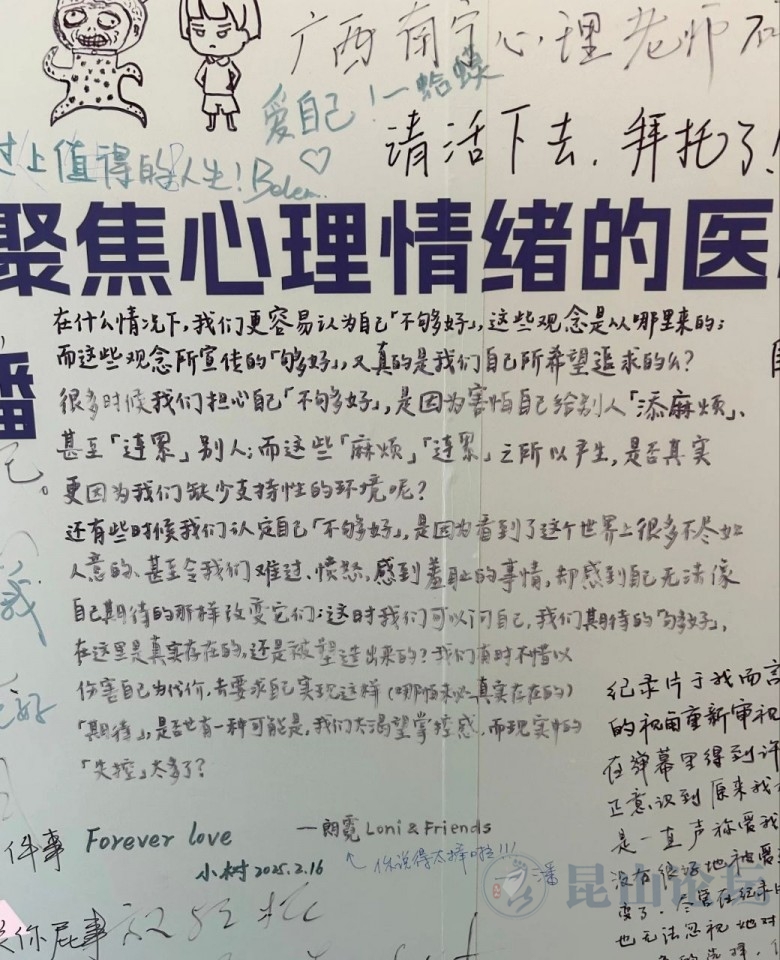 广西南宁心理老师
爱自己！一蛤蟆
请活下去，拜托了！
过上值得的人生！Bolem.
聚焦心理情绪的医
潘
在什么情况下，我们更容易认为自己「不够好」，这些观念是从哪里来的；
而这些观念所宣传的「够好」，又真的是我们自己所希望追求的么？
很多时候我们担心自己「不够好」，是因为害怕自己给别人「添麻烦」、
甚至「连累」别人；而这些「麻烦」「连累」之所以产生，是否其实
更因为我们缺少支持性的环境呢？
还有些时候我们认定自己「不够好」，是因为看到了这个世界上很多不尽如
人意的、甚至令我们难过、愤怒，感到羞耻的事情，却感到自己无法像
自己期待的那样改变它们；这时我们可以问自己，我们期待的「够好」，
在这里是真实存在的，还是被塑造出来的？我们有时不惜以
伤害自己为代价，去要求自己实现这样（哪怕未必真实存在的）
「期待」，是否也有一种可能是，我们太渴望掌控感，而现实中的
「失控」太多了？
—朗霓 Loni & Friends
你说得太棒啦!!!
—潘
件事 Forever love
小树 2025.2.16
你屁事
纪录片于我而言
的视角重新审视
在弹幕里得到许
正意识到原来我
是一直声称爱我
没有很好地被爱
变了．尽管在纪录片
也无法忽视她对
昆山论坛